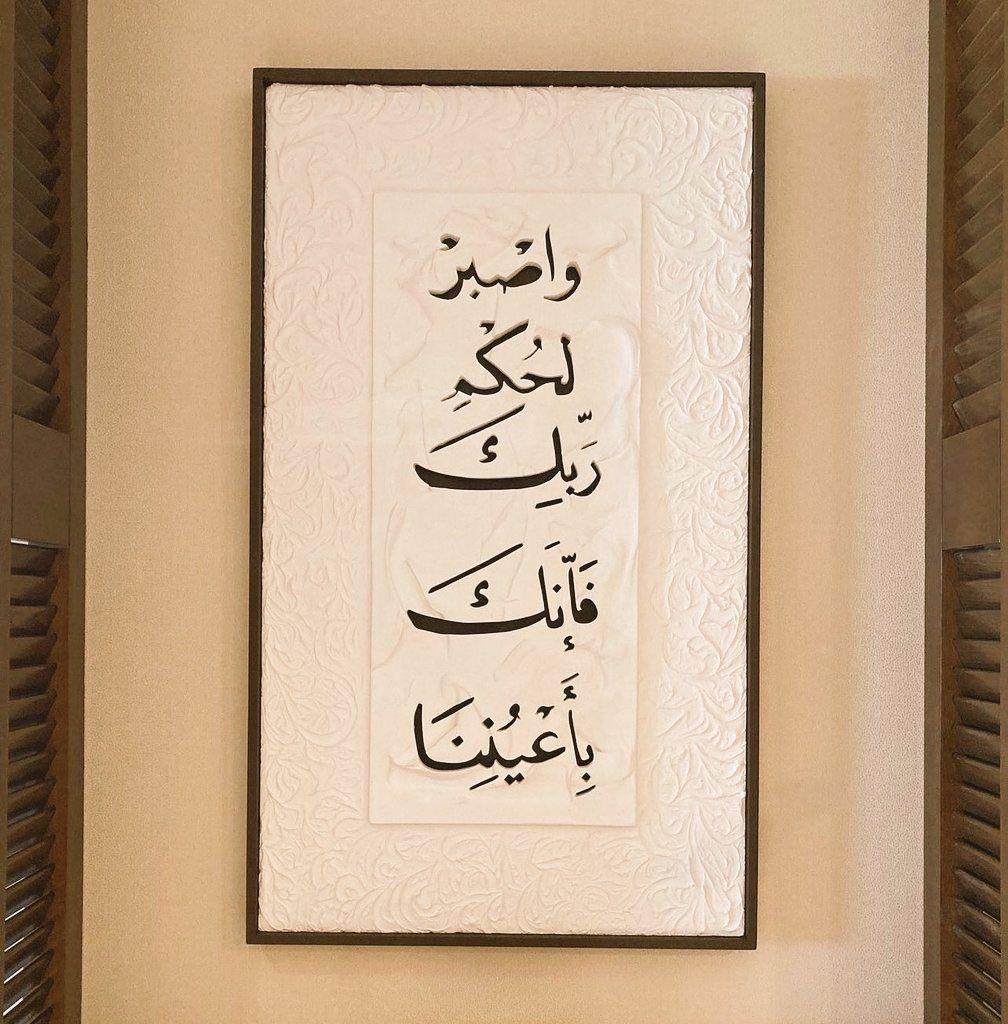 واصْبرْ
لحُكْمِ
رَّبكَِ
فَإنَّكَ
بِأَعْيُنِنَا